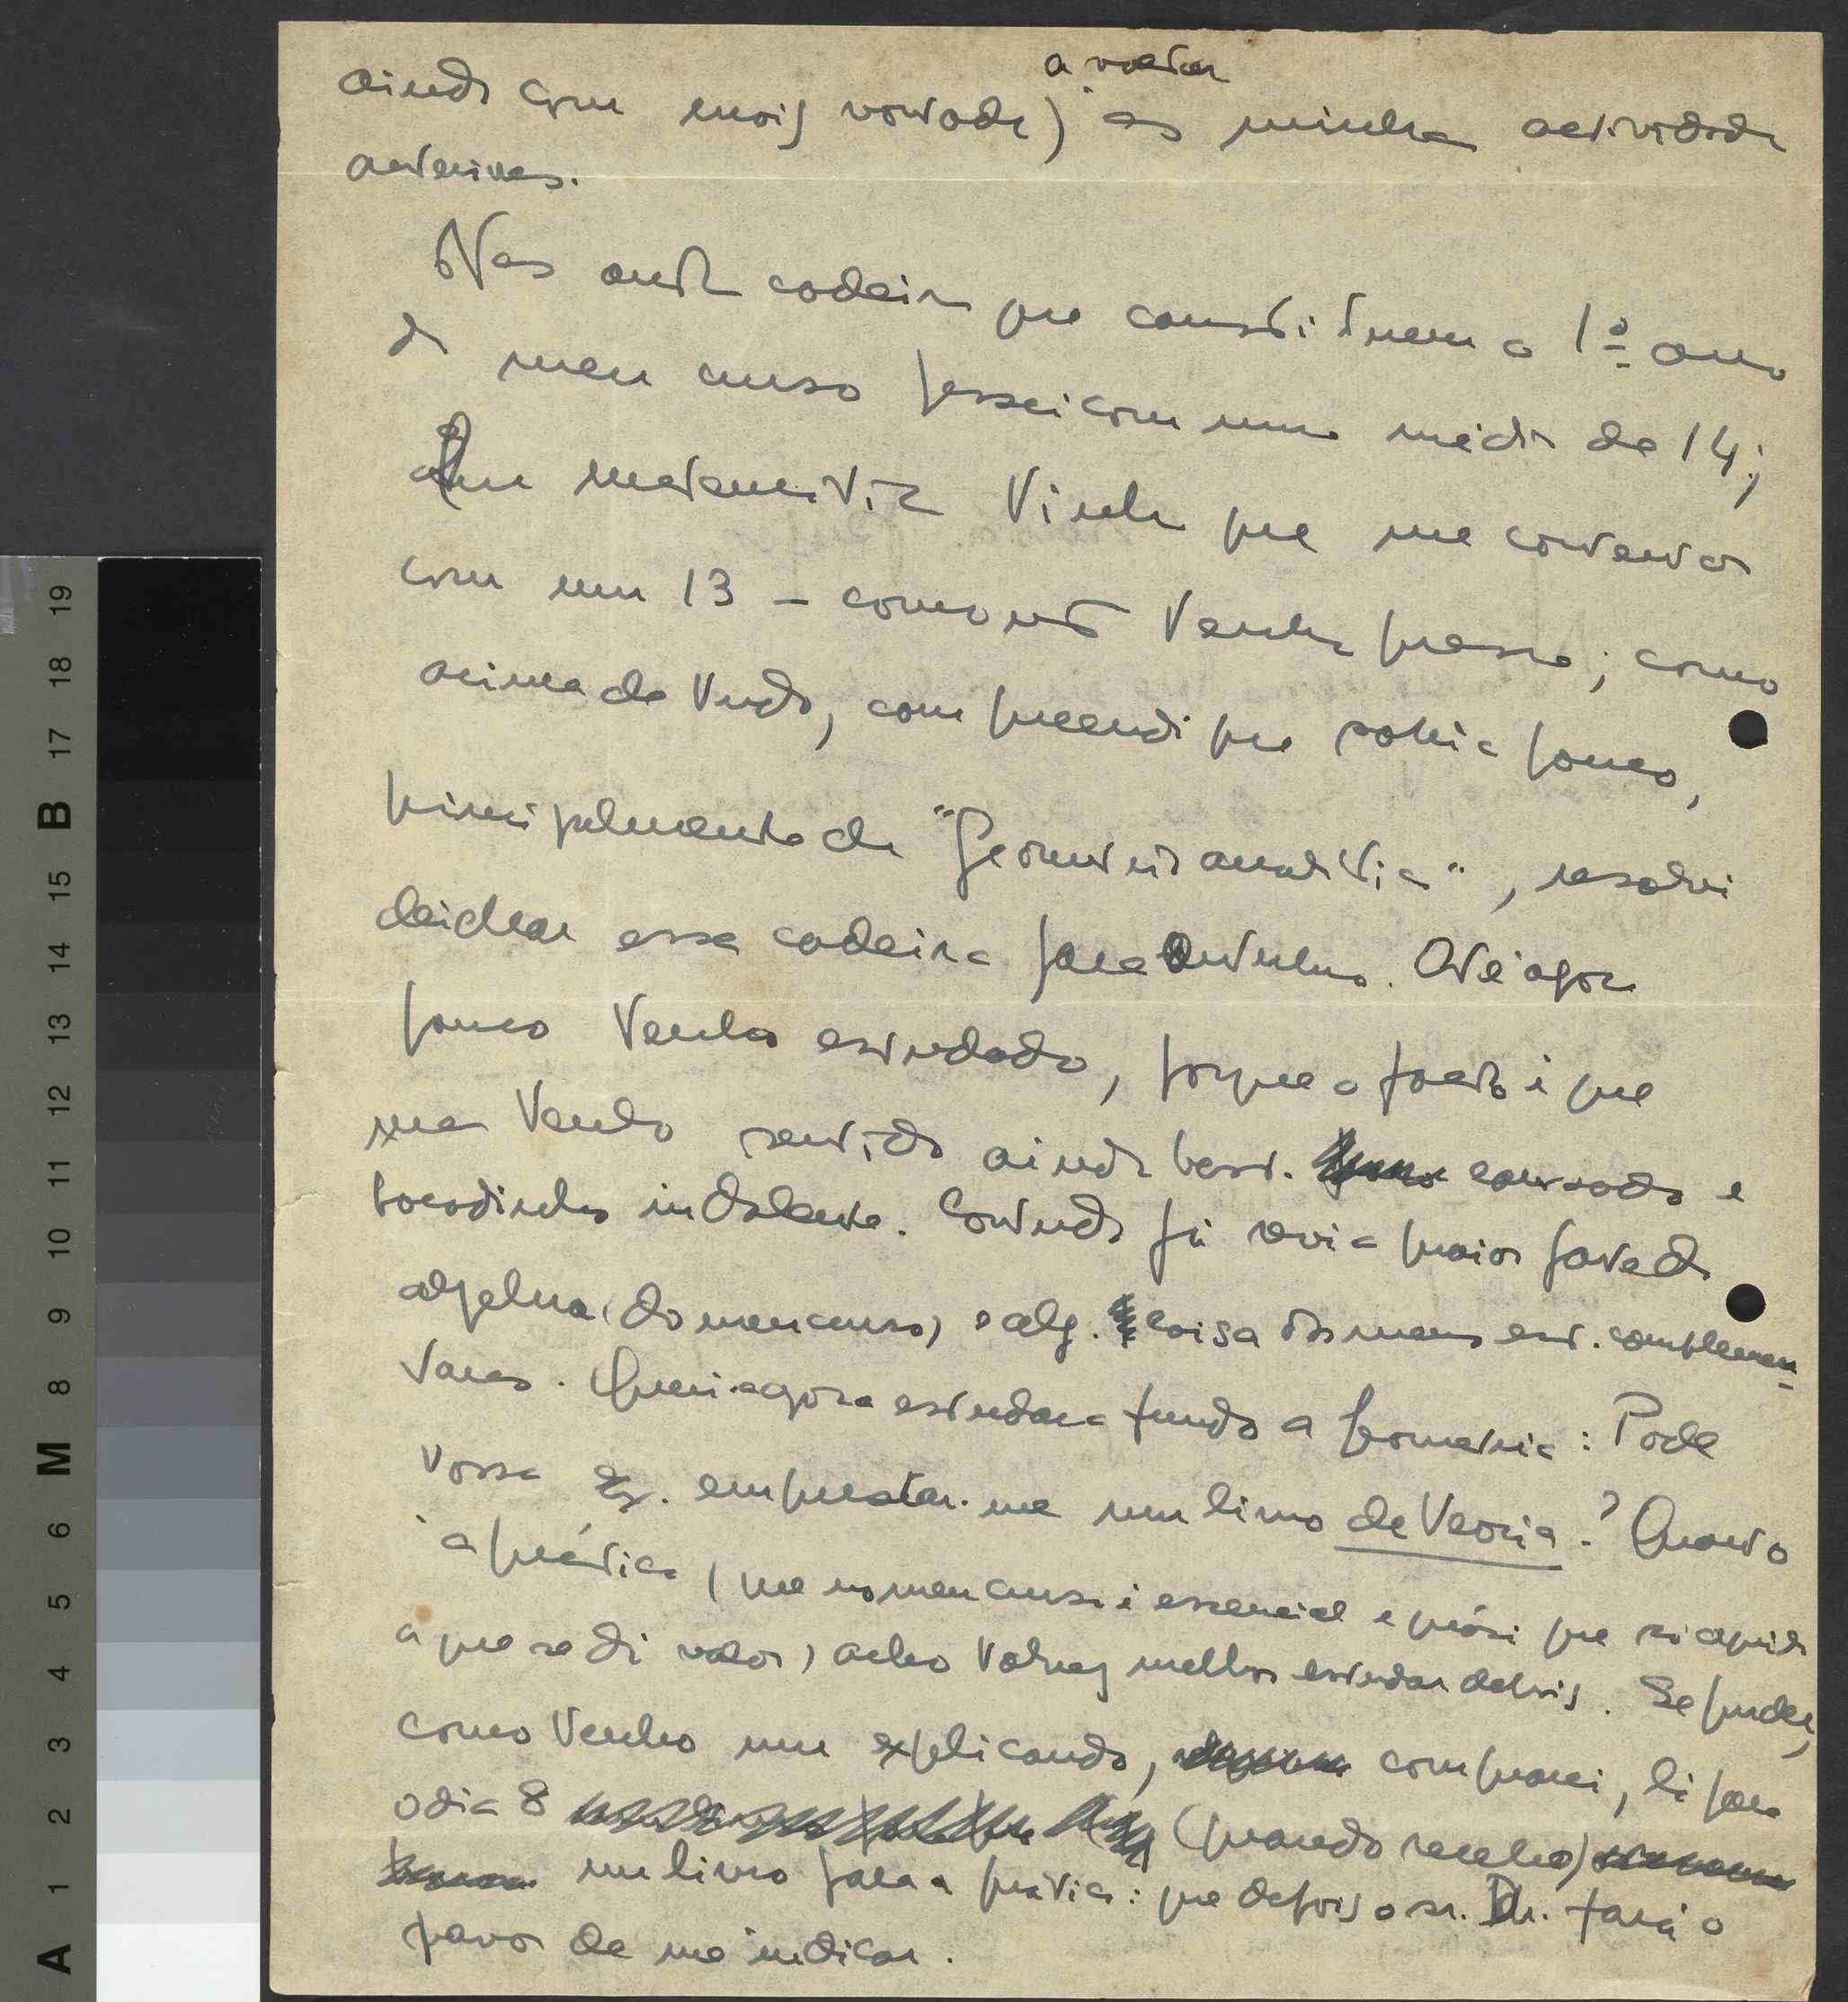 a voltar
ainda com mais vontade) as minhas actividades
anteriores.
Nas outras cadeiras que constituem o 1º ano
do meu curso passei com uma média de 14;
em matemática tinha que me contentar
com um 13 – como não tenho pressa; como
acima de tudo, compreendi que sabia pouco,
principalmente de "Geometria analítica", resolvi
deichar essa cadeira para Outubro. Até agora
pouco tenho estudado, porque o facto é que
me tenho sentido ainda bast. cansado e
bocadinho indolente. Contudo já revi a maior parte da
algebra (do meu curso) e alg. coisa dos meus est. complemen-
tares. Queria agora estudar a fundo a Geometria: Pode
Vossa Ex. emprestar-me um livro de Teoria? Quanto
à prática (que no meu curso é essencial e quási que só aquilo
a que se dá valor) acho talvez melhor estudar depois. Se puder,
como tenho um explicando, comprarei, lá para
o dia 8 (quando recebo)
um livro para a prática: que depois o sr. Dr. fará o
favor de me indicar.
A 1 2 3 4 5 6 M 8 9 10 11 12 13 14 15 B 17 18 19